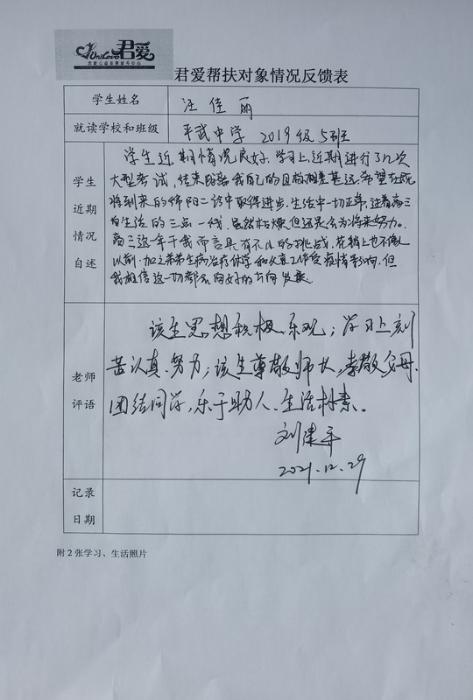 君爱
君爱帮扶对象情况反馈表
学生姓名 汪佳丽
就读学校和班级 平武中学 2019级5班
学生近期情况自述
学生近期情况良好。学习上,近期进行了几次
大型考试,结果距离我自己的目标相差甚远,希望在
将到来的绵阳二诊中取得进步。生活中一切正常,过着高三
的生活的三点一线,虽然枯燥但还是会为将来努力。
高三这一年于我而言具有不小的挑战,花销上也不像
以前,加之弟弟生病治疗休学和父亲工作受疫情影响,但
我相信这一切都会向好的方向发展
老师评语
该生思想积极乐观;学习上刻
苦认真、努力;该生尊敬师长,孝敬父母、
团结同学,乐于助人、生活朴素。
刘建平
2021.12.29
记录日期
附2张学习、生活照片